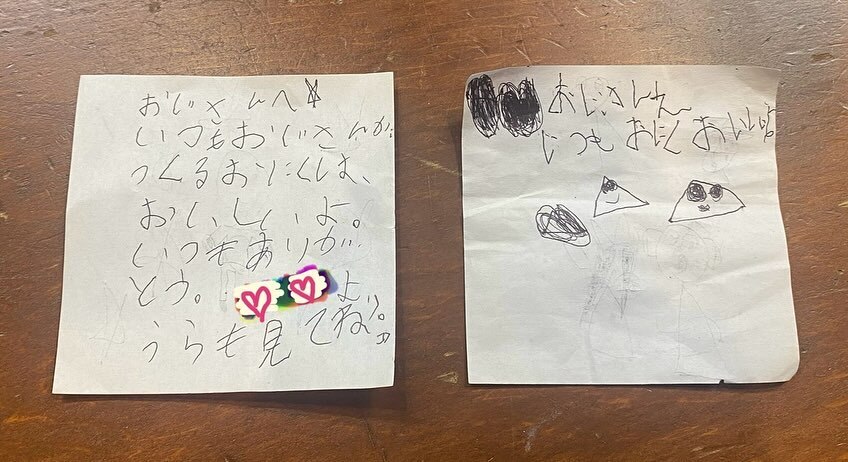 おじさんへ
いつもおじさんが
つくるおにくは、
おいしいよ。
いつもありが
とう。 より。
うらも見てね
おじさんえ
いつも おにく おいしいよ